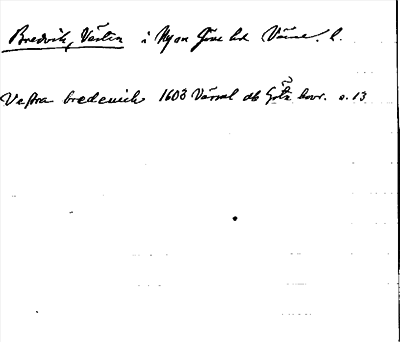 Bredvik, Västra i Nyen Göns hd Värml. l.
Vestra bredeuich 1603 Värml db Götz hovr. s. 13